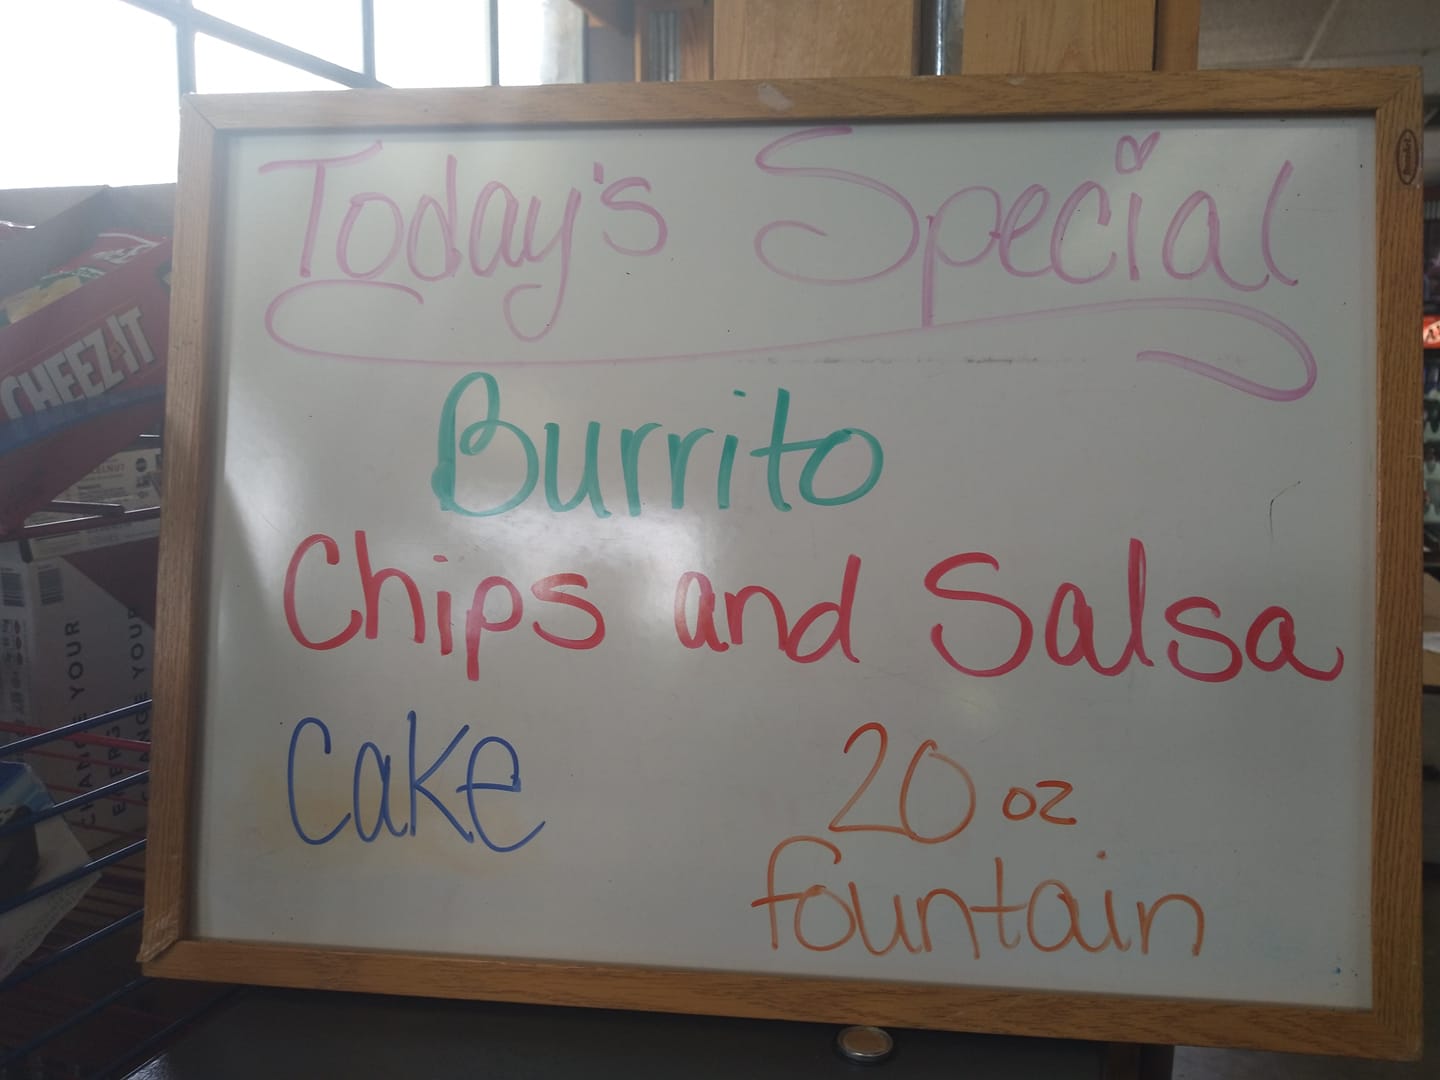 Today's Special
Burrito
Chips and Salsa
Cake
20 oz
fountain
CHEEZ-IT
CHANGE YOUR
ENERGY
CHANGE YOUR